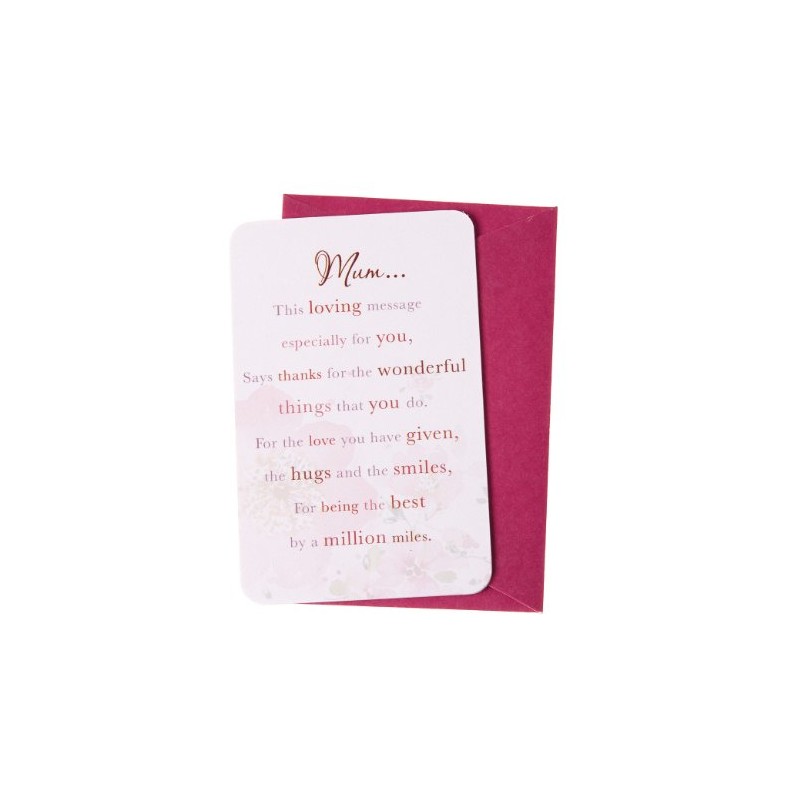 Mum...
This loving message
especially for you,
Says thanks for the wonderful
things that you do.
For the love you have given,
the hugs and the smiles,
For being the best
by a million miles.